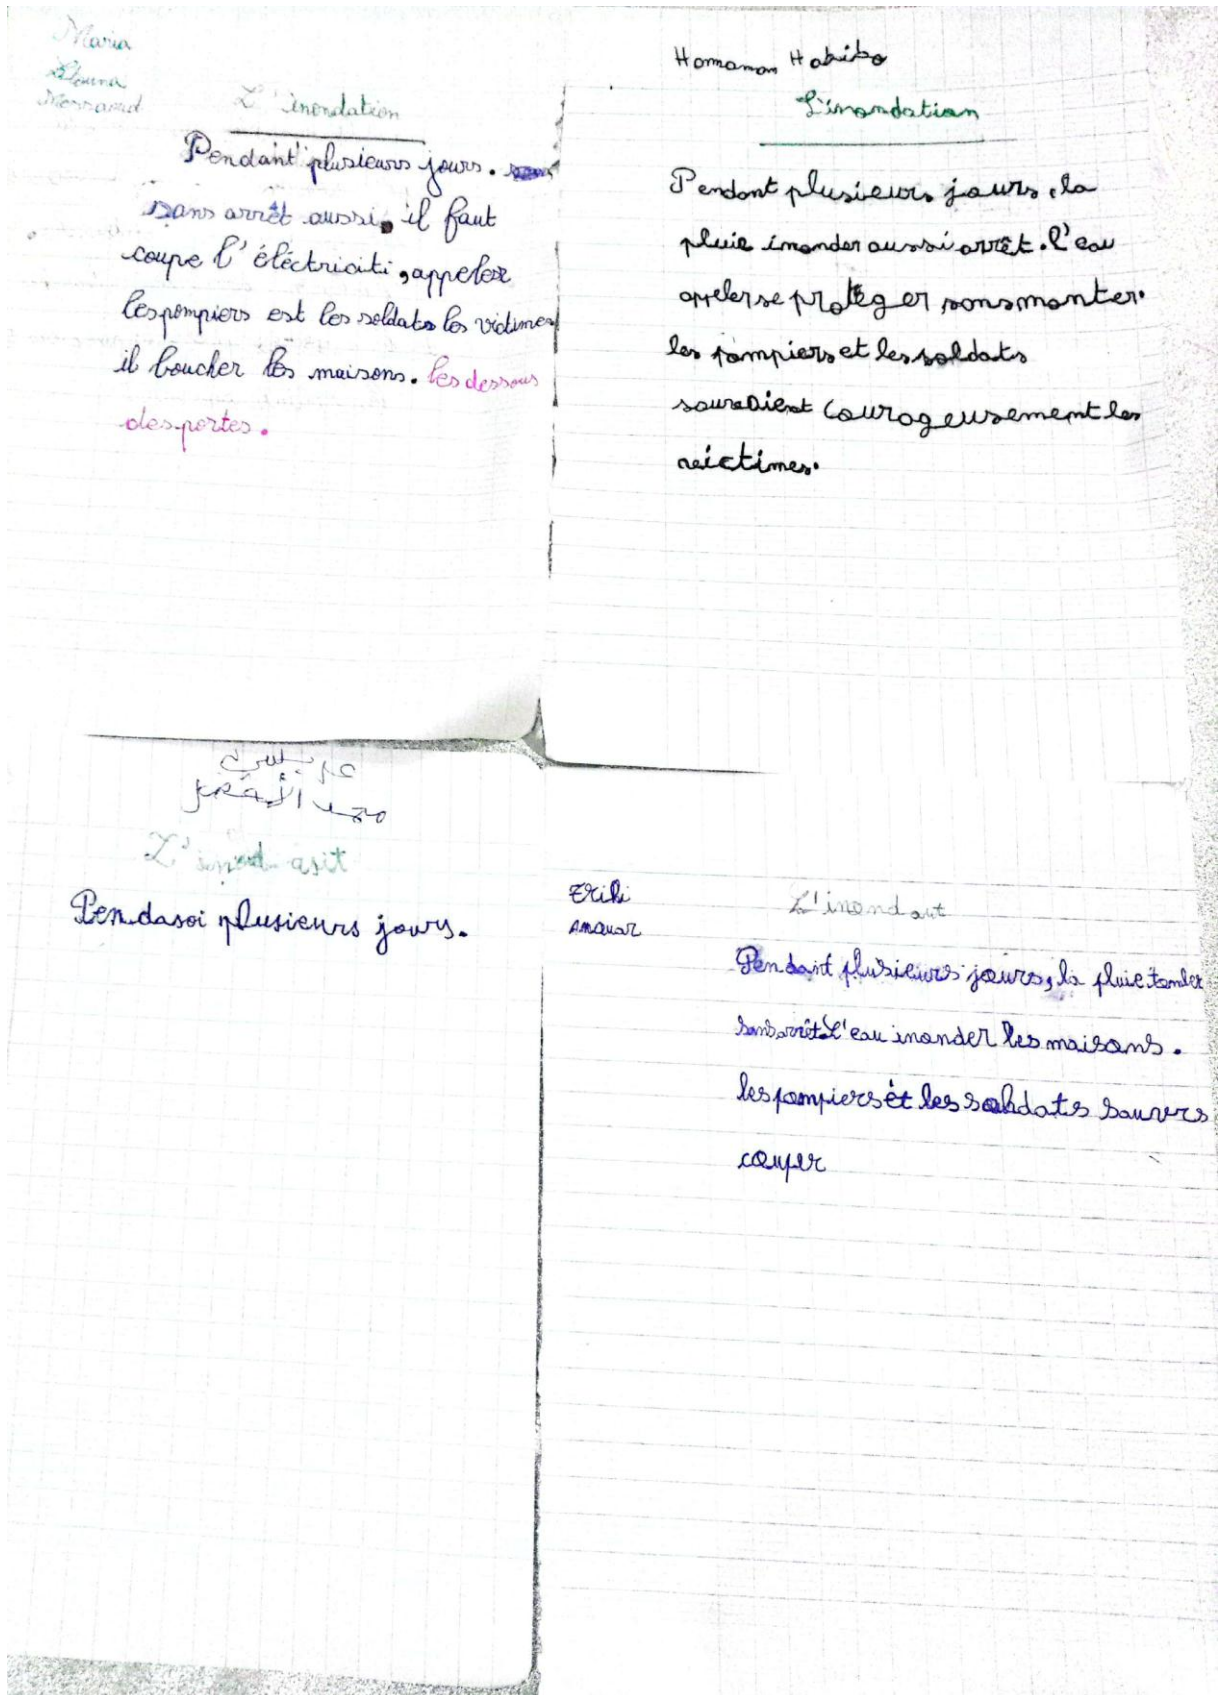 Maria
Messaoud
L'inondation
Pendant plusieurs jours.
sans arrêt aussi, il faut
coupe l'éléctriciti, appeler
les pompiers est les soldats les victimes
il boucher les maisons. les dessous
des portes.
Homaman Habiba
L'inondation
Pendant plusieurs jours, la
pluie inonder aussi arrêt. l'eau
appeler se protéger sons monter.
les pompiers et les soldats
courageusement les
عربسي
محمد الأخضر
L'inod asit
Pendasoi plusieurs jours.
Eriki
Anouar
L'inondant
Pendant plusieurs jours, la pluie tomber
sans arrêt L'eau inonder les maisons.
les pompiers ét les soldats sauvers
couper